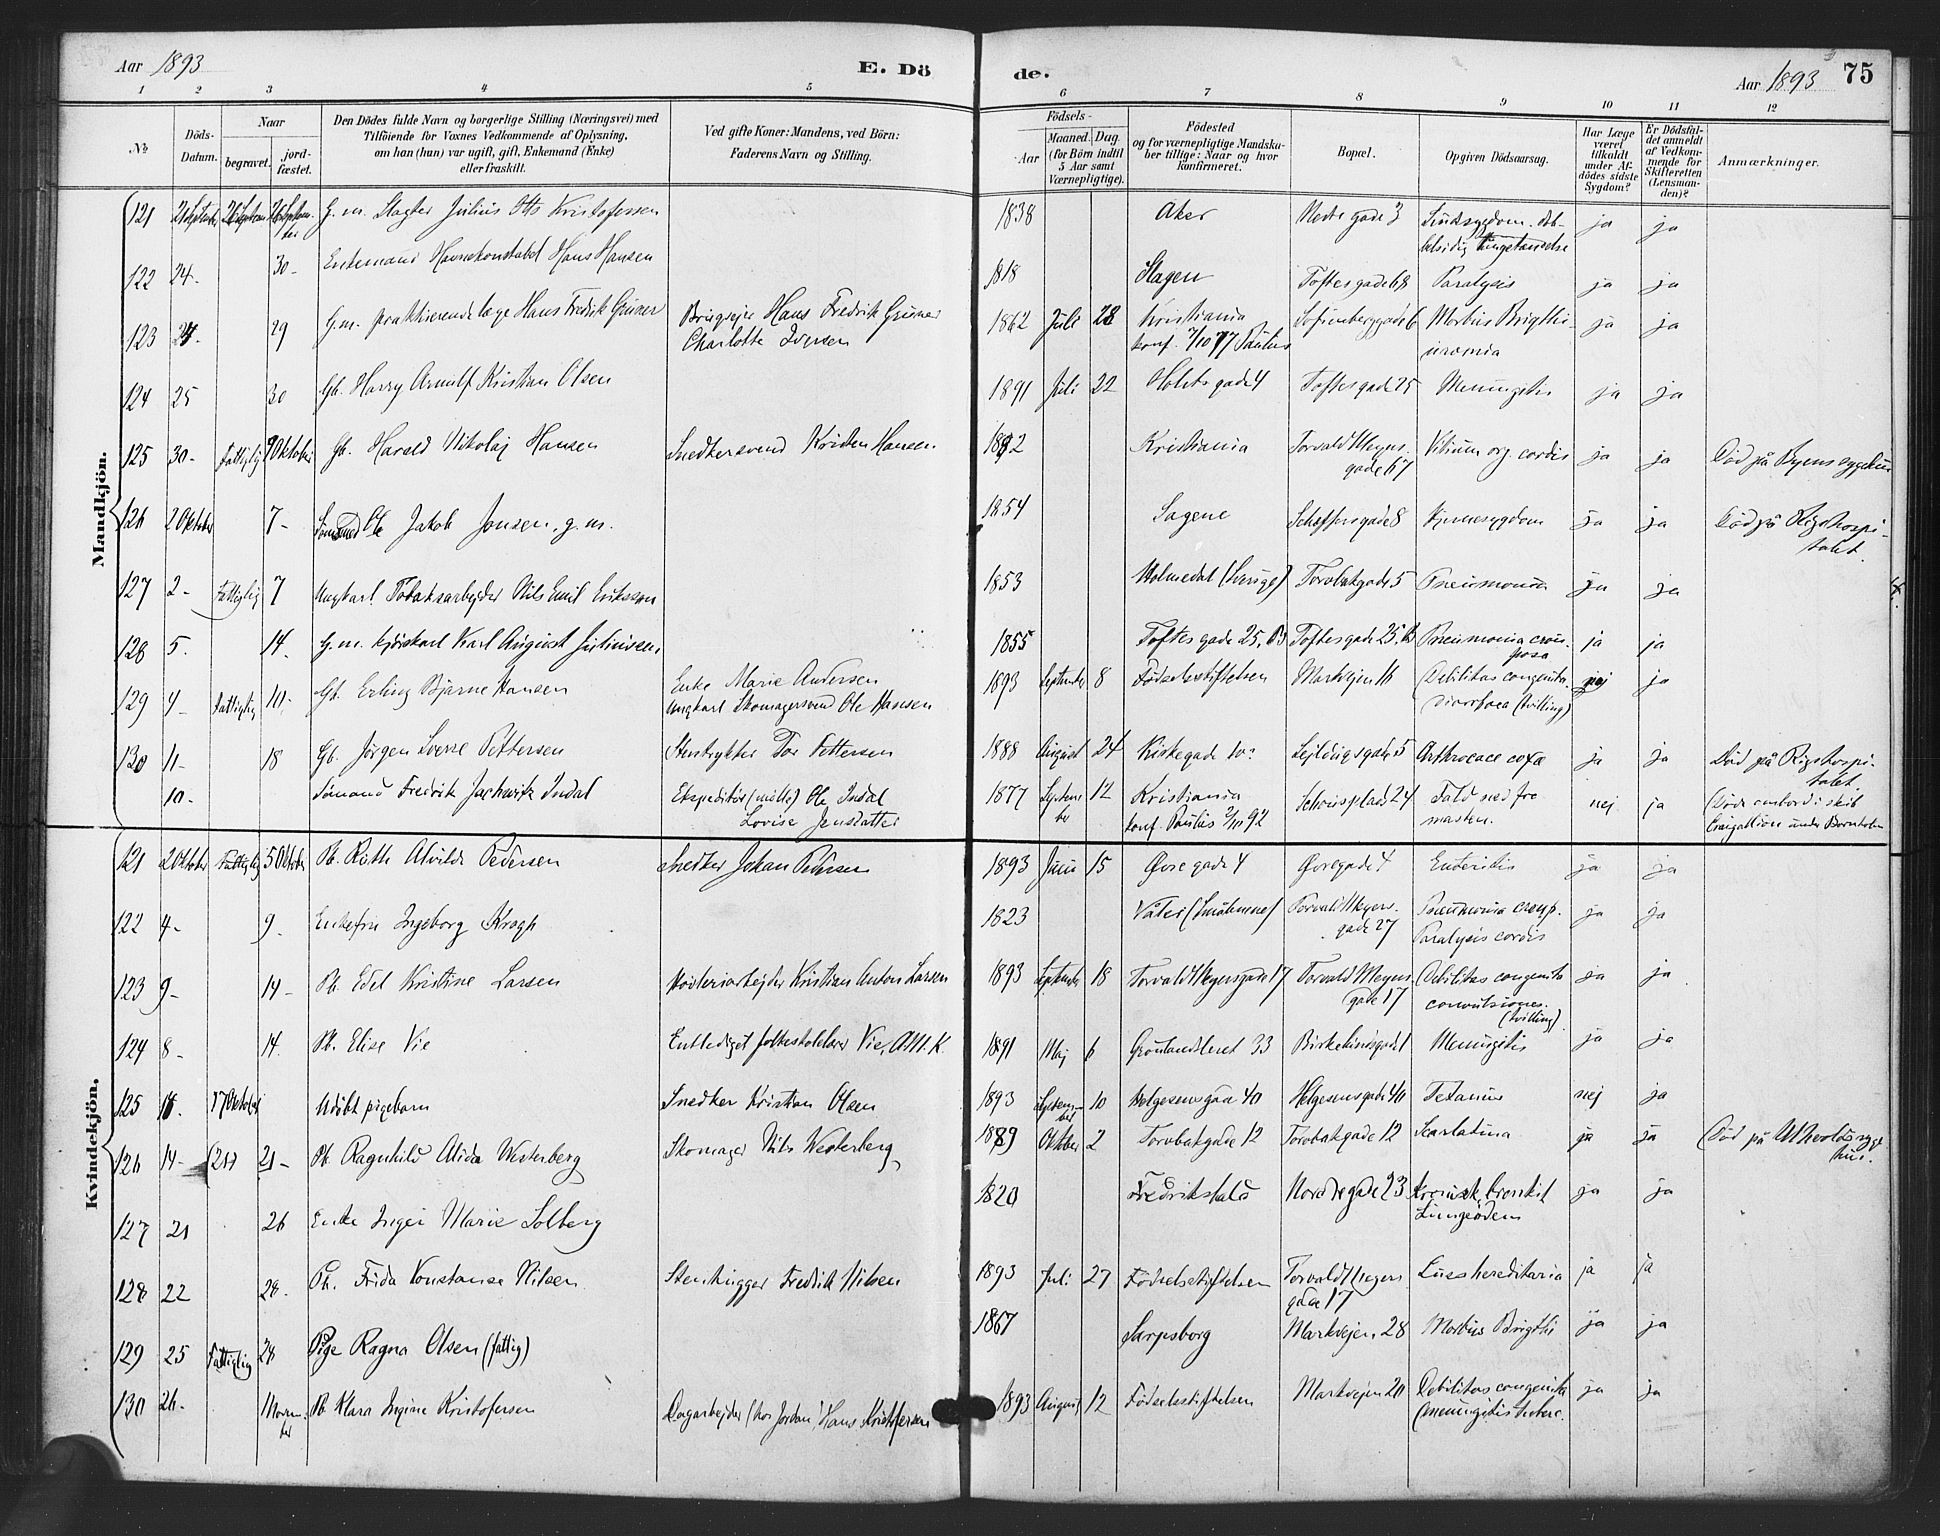 Aar 1893 E. Dö
de. Aar 1893 75
1 2 3 4 5 6 7 8 9 10 11 12
No
Döds-Datum.
Naar
begravet.
jord-fæstet.
Den Dödes fulde Navn og borgerlige Stilling (Næringsvei) med
Tilföiende for Voxnes Vedkommende af Oplysning,
om han (hun) var ugift, gift, Enkemand (Enke)
eller fraskilt.
Ved gifte Koner: Mandens, ved Börn:
Faderens Navn og Stilling.
Födsels-
Aar
Maaned. Dag
(for Börn indtil
5 Aar samt
Værnepligtige).
Födested
og for værnepligtige Mandska-
ber tillige: Naar og hvor
konfirmeret.
Bopæl.
Opgiven Dödsaarsag.
Har Læge
været
tilkaldt
under Af-
dödes sidste
Sygdom?
Er Dödsfal-
det anmeldt
af Vedkom-
mende for
Skifteretten
(Lensman-
den)?
Anmærkninger.
Mandkjön.
121 G. m. Slagter Julius Otto Kristofersen 1838 Aker Nedre gade 3 ja ja
122 24. 30- Enkemand Havnekonstabel Hans Hansen 1818 Slagen Toftesgade 68 Paralysis ja ja
123 29 G. m. praktiserende læge Hans Fredrik Gruner Brugseier Hans Fredrik Gruner
Charlotte Iversen 1862 Juli 28 Kristiania
konf. 7/10 77 Paulus Sofienberggade 6 Morbus Brigthi-
uræmia ja ja
124 25 30 Gb. Harry Arnulf Kristian Olsen 1891 Juli 22 Holstsgade 4 Toftesgade 25 Meningitis ja ja
125 30- Fattiglig 9 Oktober Gb. Harald Nikolaj Hansen Snedkersvend Kristen Hansen Kristiania Torvald Meyers-
gade 67 Vitium org. cordis ja ja Död på Byens sygehus
126 2 Oktober 7- Ole Jakob Jonsen, g. m. 1854 Sagene Scheffersgade 8 Hjernesygdom ja ja Död på Rigshospi-
talet.
127 2- Fattiglig 7 Ungkarl. Tobaksarbejder Nils Emil Eriksson 1853 Holmedal (Sverige) Torvbakgade 5 Pneumonia ja ja
128 5. 14. G. m. Karl August Juliussen 1855 Toftes gade 25. B Toftesgade 25. B Pneumonia crou-
posa ja ja
129 4 Fattiglig 10. Gb. Erling Bjarne Hansen Enke Marie Andersen
Ungkarl Skomagersvend Ole Hansen 1893 September 8 Födselsstiftelsen Markvejen 16 Debilitas congenita.
Diarrhoea (tvilling) nej ja
130 11- 18 Gb. Jörgen Sverre Pettersen Stentrykker Tor Pettersen 1888 August 24 Arthrocace coxa ja ja Död på Rigshospi-
talet.
10. Sömand Fredrik Indal Ekspeditör Ole Indal
Lovise 1877 Septem-
ber 12 Kristiania
konf. Paulus 92 Schousplads 24 Fald ned fra
masten. nej ja
Kvindekjön.
121 2 Oktober Fattiglig 5 Oktober Pb. Ruth Alvilde Pedersen Snedker Johan Pedersen 1893 Juni 15 Övre gade 4 Övregade 4 Enteritis ja ja
122 4- 9- Enkefru Ingeborg Krogh 1823 Torvald Meyers-
gade 27 Pneumonia croup.
Paralysis cordis ja ja
123 9- 14- Pb. Edel Kristine Larsen Kristian Anton Larsen 1893 September 18 Torvald Meyersgade 17 Torvald Meyers
gade 17 Debilitas congenita
convulsiones.
(tvilling) ja ja
124 8- 14. Pb. Elise Vie Entlediget Vie, Am. K. 1891 Maj 6 Grönlandsleret 33 Birkelundsgade 1 Meningitis ja ja
125 17 Oktober Udöbt pigebarn Snedker Kristian Olsen 1893 Septem-
ber 10 Helgesensgade 40 Helgesensgade 40 Tetanus nej ja
126 14- (21) 21- Pb. Ragnhild Alida Westerberg Skomager Nils Westerberg 1889 Oktober 2 Torvbakgade 12 Torvbakgade 12 Scarlatina ja ja Död på Ullevolds syge
hus.
127 21 26 Enke Inger Marie Solberg 1820 Fredrikshald Nordregade 23 Kronisk bronkit
Lungeödem ja ja
128 22 28. Pb. Frida Konstanse Nilsen Stenhugger Fredrik Nilsen 1893 Juli 27 Födselsstiftelsen Torvald Meyers
gade 17 Lues hereditaria ja ja
129 25 Fattiglig 28 Pige Ragna Olsen (fattig) 1867 Sarpsborg Markvejen 28 Morbus Brigthi ja ja
130 26. 1 Novem-
ber Pb. Klara Ingine Kristofersen Dagarbejder (hos Jordan) Hans Kristofersen 1893 August 12 Födselsstiftelsen Markvejen 20 Debilitas congenita
(meningitis tuberc. ja ja